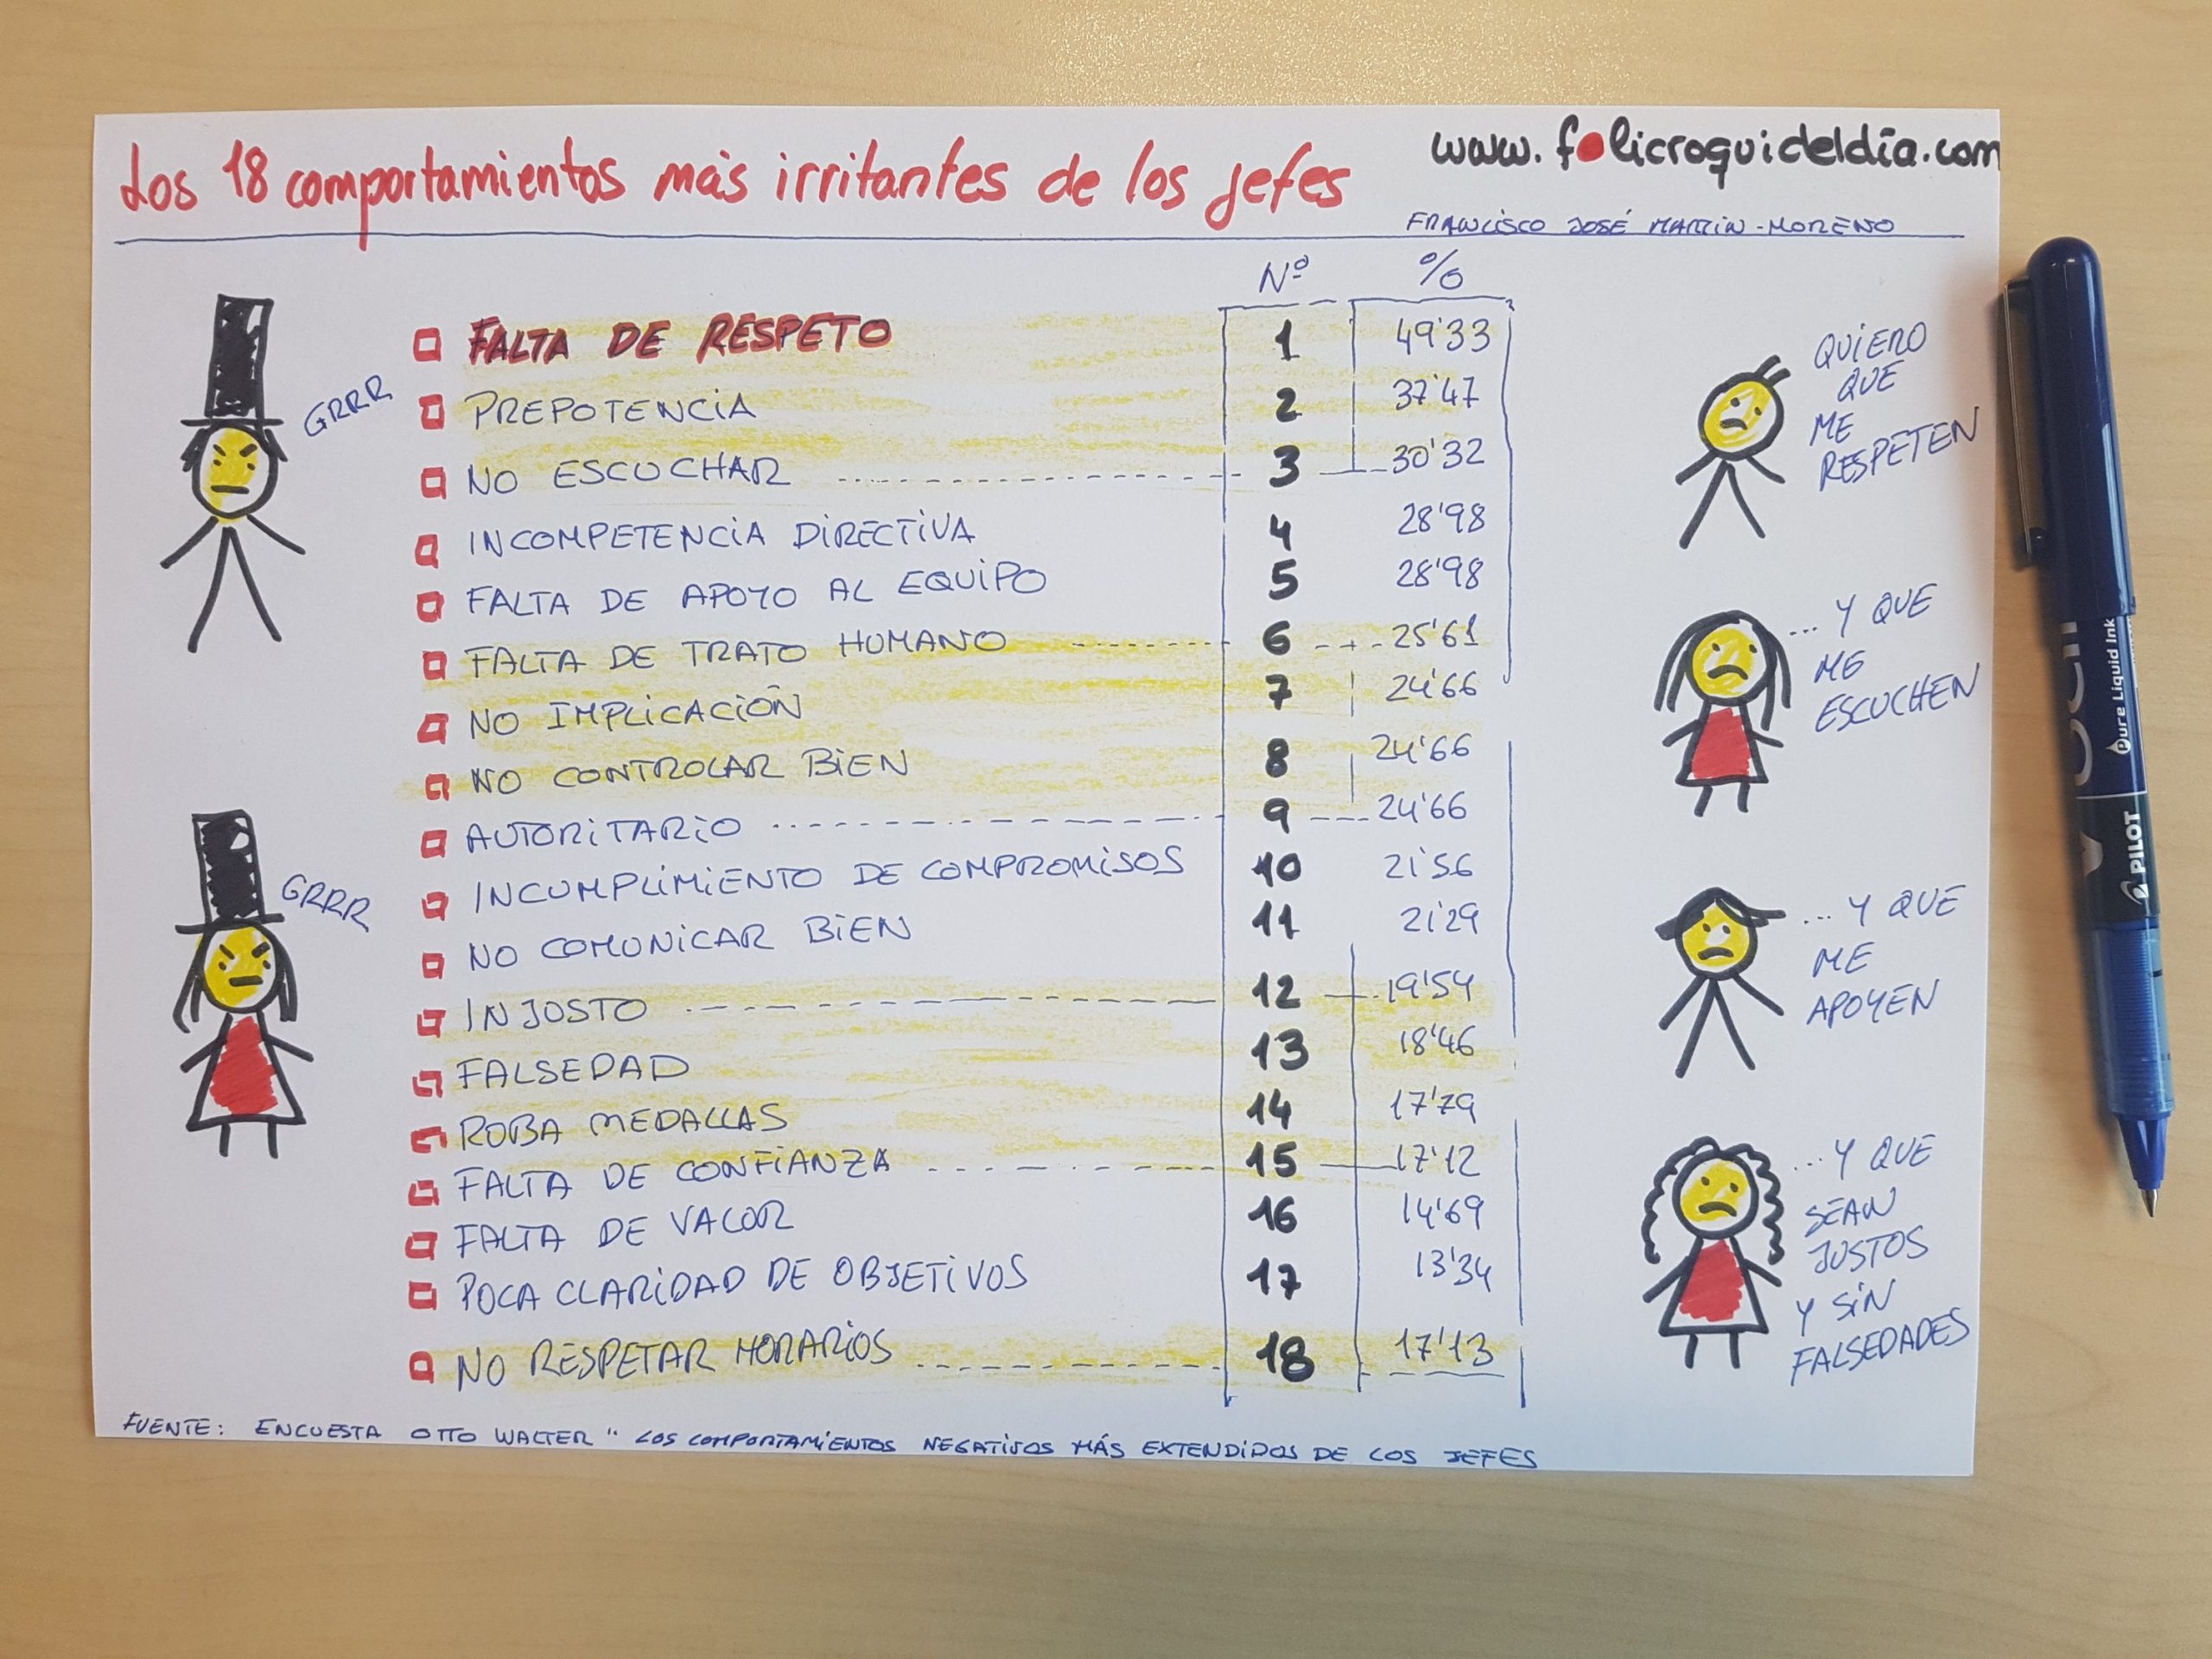 Los 18 comportamientos más irritantes de los jefes
www.folicroquideldía.com
FRANCISCO JOSÉ MARTIN-MORENO
Nº %
FALTA DE RESPETO 1 49'33
PREPOTENCIA 2 37'47
NO ESCUCHAR 3 30'32
INCOMPETENCIA DIRECTIVA 4 28'98
FALTA DE APOYO AL EQUIPO 5 28'98
FALTA DE TRATO HUMANO 6 25'61
NO IMPLICACIÓN 7 24'66
NO CONTROLAR BIEN 8 24'66
AUTORITARIO 9 24'66
INCUMPLIMIENTO DE COMPROMISOS 10 21'56
NO COMUNICAR BIEN 11 21'29
INJUSTO 12 19'54
FALSEDAD 13 18'46
ROBA MEDALLAS 14 17'79
FALTA DE CONFIANZA 15 17'12
FALTA DE VALOR 16 14'69
POCA CLARIDAD DE OBJETIVOS 17 13'34
NO RESPETAR HORARIOS 18 17'13
GRRR
GRRR
QUIERO
QUE
ME
RESPETEN
... Y QUE
ME
ESCUCHEN
... Y QUE
ME
APOYEN
... Y QUE
SEAN
JUSTOS
Y SIN
FALSEDADES
FUENTE: ENCUESTA OTTO WALTER "LOS COMPORTAMIENTOS NEGATIVOS MÁS EXTENDIDOS DE LOS JEFES
Pure Liquid Ink
PILOT